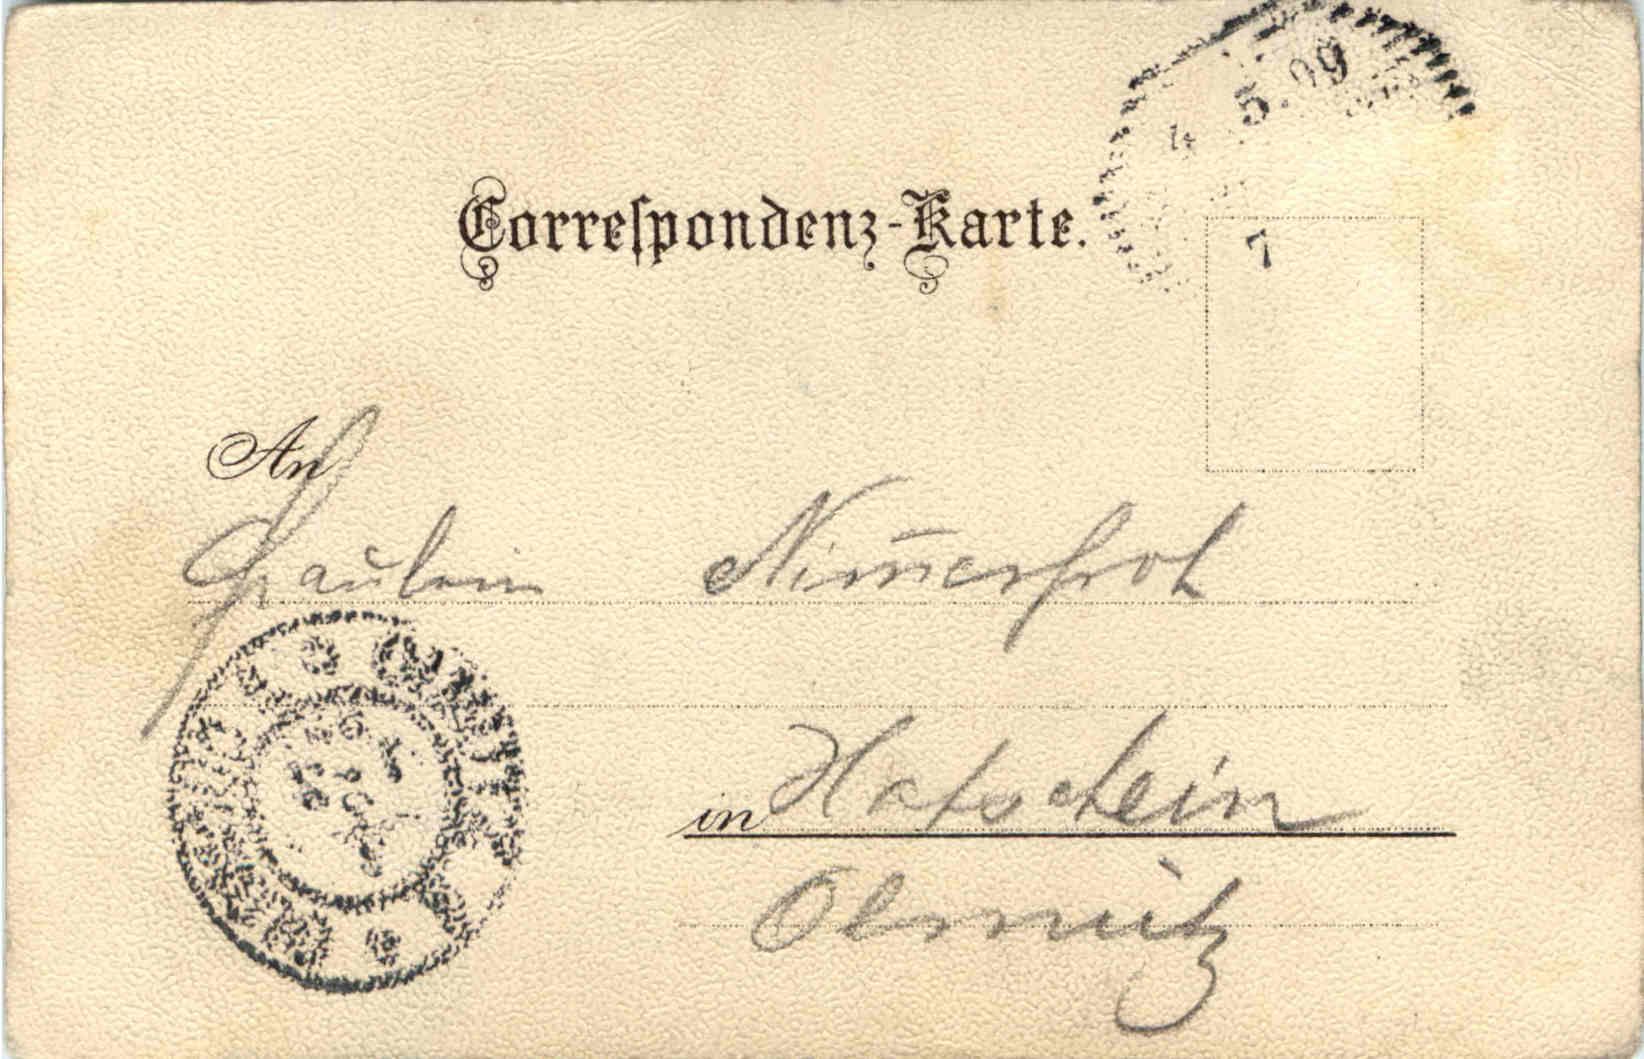 5.99
4
Correspondenz-Karte.
7
An
Fräulein Nim̅erfroh
in Hatschein
Olmütz